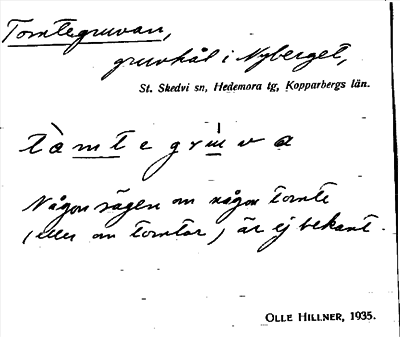 Tomtegruvan,
gruvhål i Nyberget,
St. Skedvi sn, Hedemora tg, Kopparbergs län.
tàmtegrùva
Någon sägen om någon tomte
(eller om tomtar) är ej bekant.
OLLE HILLNER, 1935.